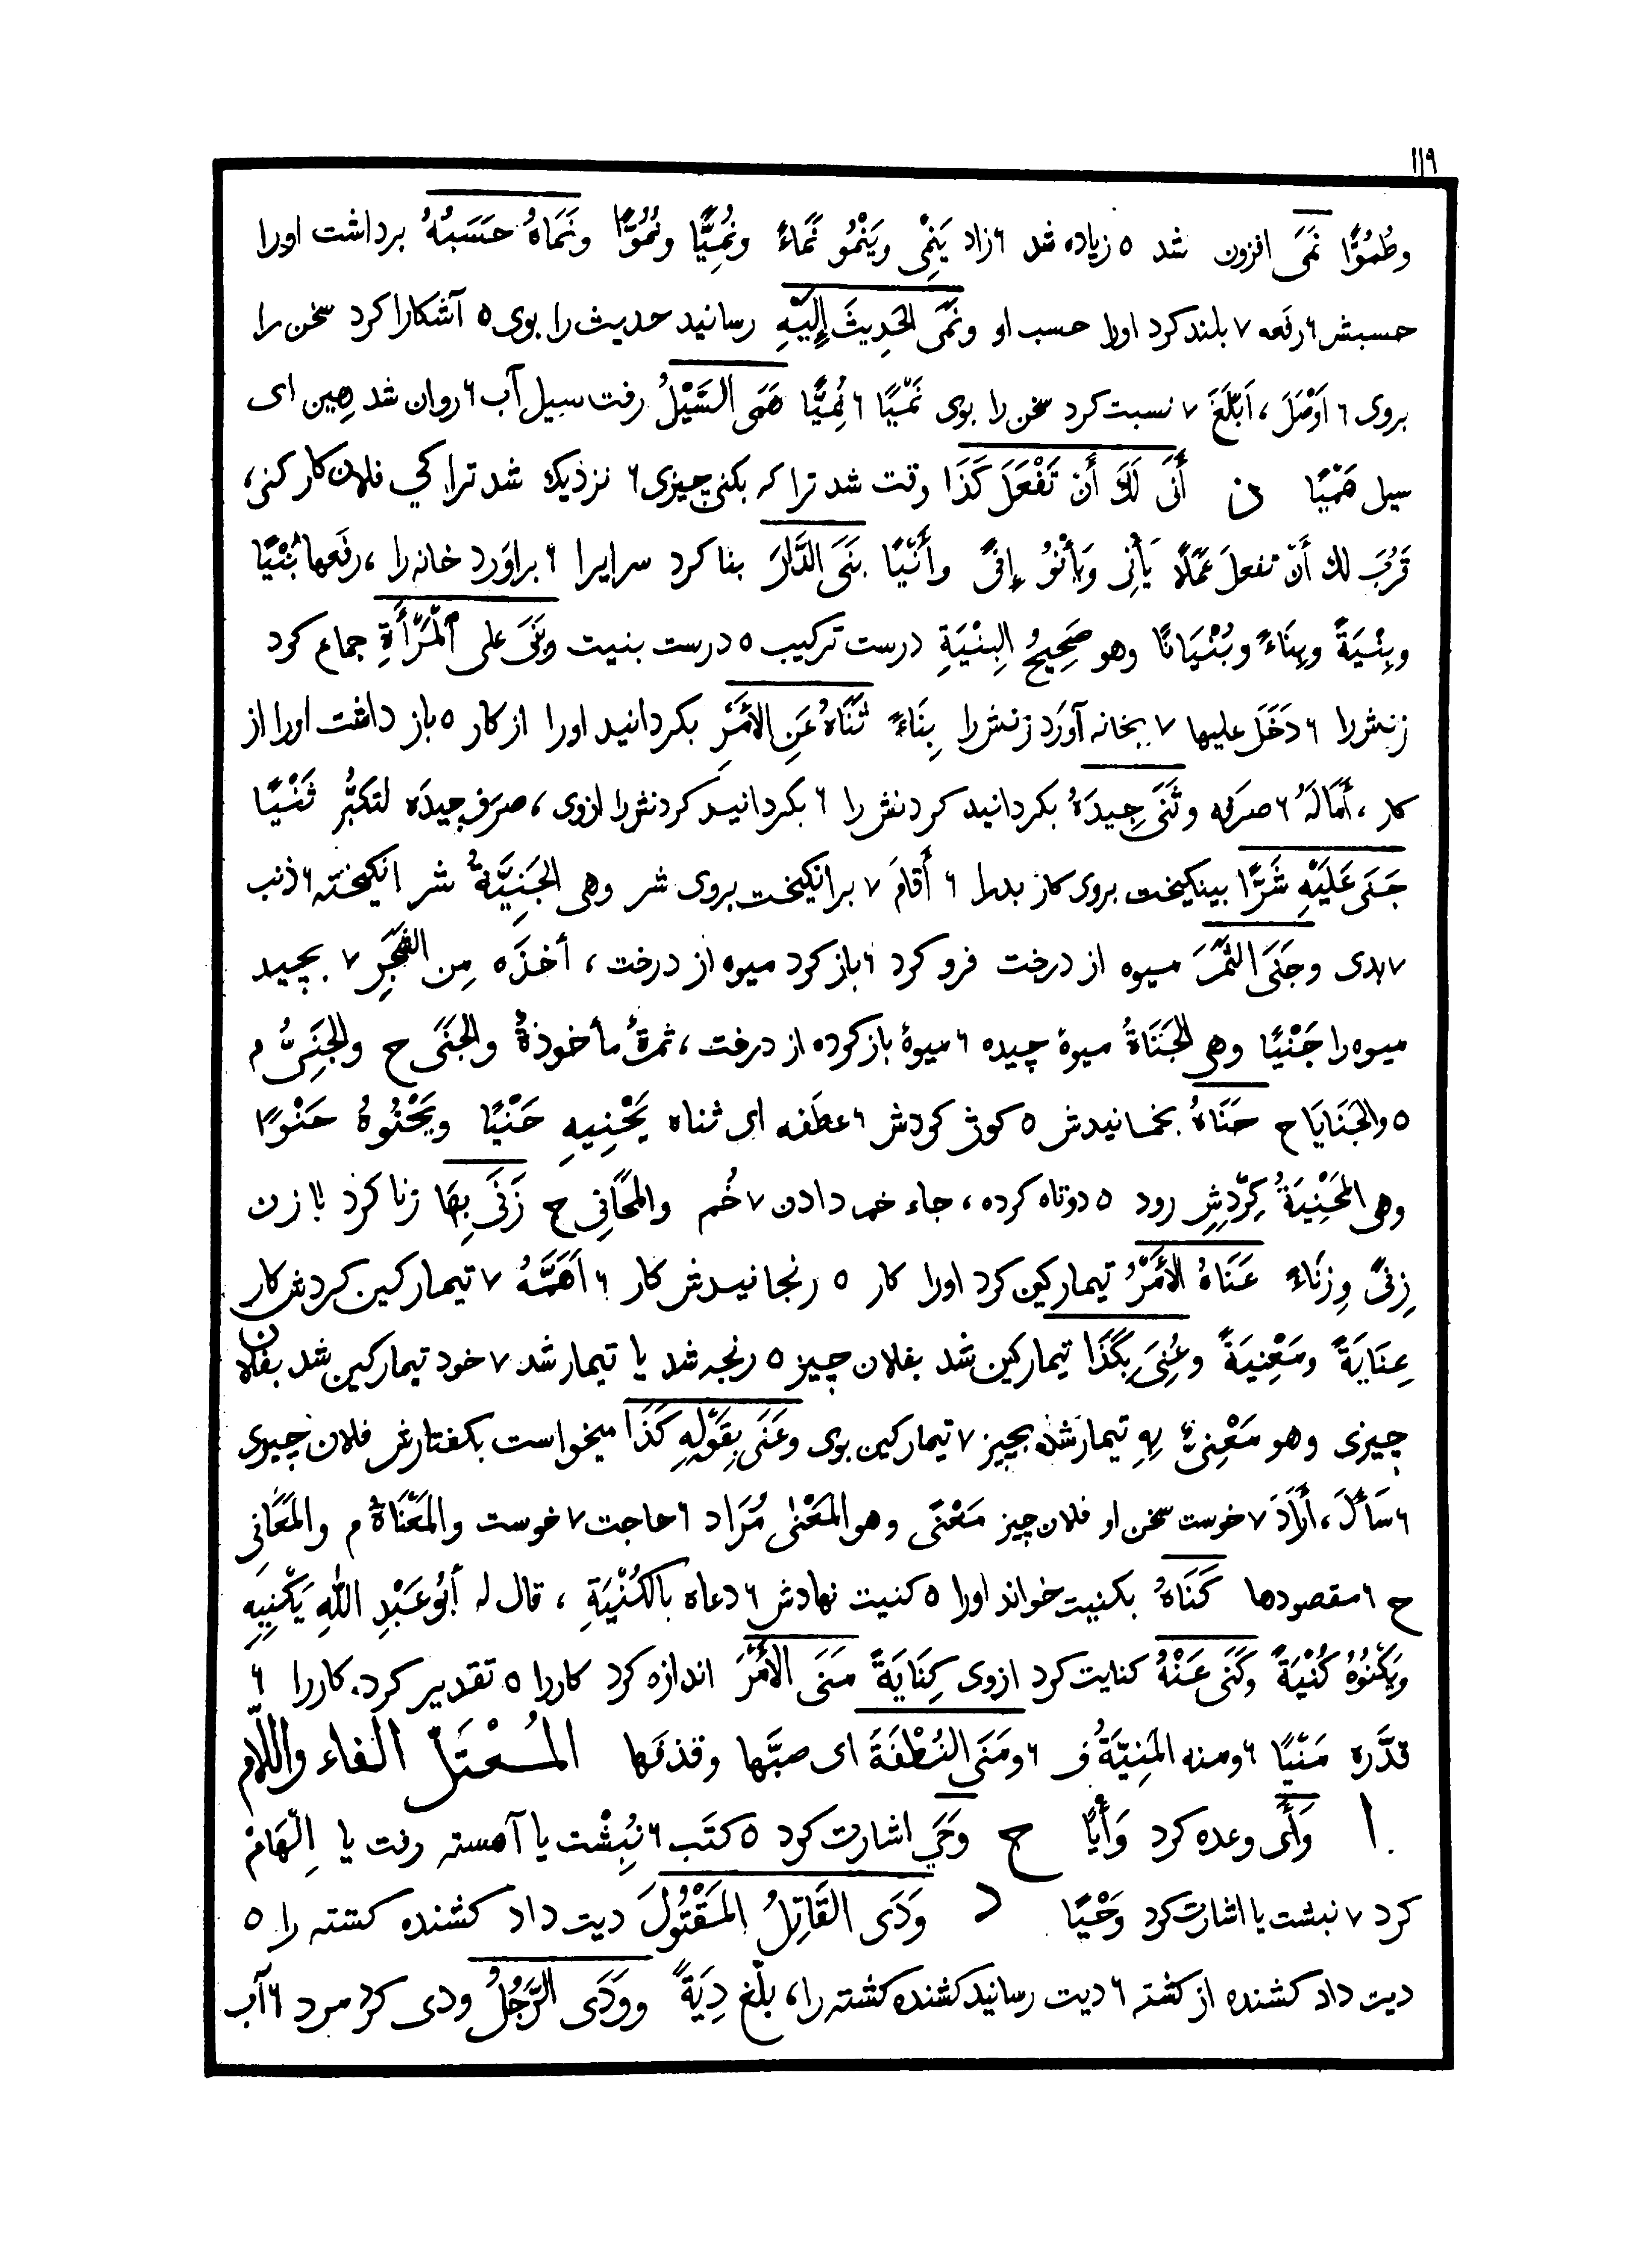 ١١٩
وطُمُوًّا نَمَى افزون شد ٥ زیاده شد ۶ زاد یَنْمِی ویَنْمُو نَمَاءً ونُمِیًّا ونُمُوًّا ونَمَاهُ حَسَبُهُ برداشت اورا
حسبش ۶ رفَعه ۷ بلند کرد اورا حسب او ونَمَى الحَدِیثَ إِلَیْهِ رسانید حدیث را بوی ٥ آشکارا کرد سخن را
بروی ۶ اَوْصَلَ ، اَبْلَغَ ۷ نسبت کرد سخن را بوی نَمْیًا ۶ نُمِیًّا هَمَى السَّیْلُ رفت سیل آب ۶ روان شد هین ای
سیل هَمْیًا ن أَنَى لَكَ أَنْ تَفْعَلَ كَذَا وقت شد ترا که بکنی چیزی ۶ نزدیك شد ترا کی فلان کار کنی ،
قَرُبَ لك أَنْ تفعلَ عَمَلًا یَأْنِی وَیَأْنُو إِنًى وأَنْیًا بَنَى الدَّارَ بنا کرد سرایرا ۶ براورد خانه را ، رفَعها بُنْیًا
وبِنْیَةً وبِنَاءً وبُنْیَانًا وهو صَحِیحُ البِنْیَةِ درست ترکیب ٥ درست بنیت وبَنَى على المَرْأَةِ جماع کرد
زنش را ۶ دَخَلَ علیها ۷ بخانه آورد زنش را بِنَاءً ثَنَاهُ عَنِ الأَمْرِ بکردانید اورا از کار ٥ باز داشت اورا از
کار ، أَمَالَهُ ۶ صرَفه وثَنَى جِیدَهُ بکردانید کردنش را ۶ بکردانید کردنش را ازوی ، صرَف جیدَه لتکبُّر ثَنْیًا
جَنَى عَلَیْهِ شَرًّا بینکیخت بروی کار بدرا ۶ أَقامَ ۷ برانکیخت بروی شر وهی الجَنِیَّةُ شر انکیخته ۶ ذنب
۷ بدی وجَنَى الثَّمَرَ میوه از درخت فرو کرد ۶ باز کرد میوه از درخت ، أخذَه مِن الشَّجَرِ ۷ بچید
میوه را جَنْیًا وهی الجَنَاةُ میوهٔ چیده ۶ میوهٔ باز کرده از درخت ، ثمرةٌ مأخوذةٌ والجَنَى ح والجَنِیُّ م
٥ والجَنَایَا ح حَنَاهُ بخمانیدش ٥ کوژ کردش ۶ عطَفه ای ثناه یَحْنِیهِ حَنْیًا ویَحْنُوهُ حَنْوًا
وهی المَحْنِیَةُ کِرْدِشِ رود ٥ دوتاه کرده ، جاء خم دادن ۷ خُم والمَحَانِی ح زَنَى بِهَا زنا کرد با زن
زِنًى وزِنَاءً عَنَاهُ الأَمْرُ تیمارکین کرد اورا کار ٥ رنجانیدش کار ۶ اَهَمَّهُ ۷ تیمارکین کردش کار
عِنَایَةً ومَعْنِیَةً وعُنِیَ بِكَذَا تیمارکین شد بفلان چیز ٥ رنجه شد یا تیمار شد ۷ خود تیمارکین شد بفلان
چیزی وهو مَعْنِیٌّ بِهِ تیمار شده بچیز ۷ تیمارکین بوی وعَنَى بِقَوْلِهِ كَذَا میخواست بکفتارش فلان چیزی
۶ سَأَلَ ، أَرَادَ ۷ خوست سخن او فلان چیز مَعْنًى وهو المَعْنَى مُرَاد ۶ حاجت ۷ خوست والمَعْنَاةُ م والمَعَانِی
ح ۶ مقصودها كَنَاهُ بکنیت خواند اورا ٥ کنیت نهادش ۶ دعاه بالكُنْیَةِ ، قال له أَبُو عَبْدِ اللهِ یَكْنِیهِ
ویَكْنُوهُ كُنْیَةً وكَنَى عَنْهُ کنایت کرد ازوی كِنَایَةً مَنَى الأَمْرَ اندازه کرد کاررا ٥ تقدیر کرد کاررا ۶
قدَّره مَنْیًا ۶ ومنه المَنِیَّةُ ف ۶ ومَنَى النُّطْفَةَ ای صبَّها وقذفها المُعْتَلّ الفاء واللّام
ا وَأَى وعده کرد وَأْیًا ح وَحَى اشارت کرد ٥ کتَب ۶ نبِشْت یا آهسته رفت یا اِلْهَامْ
کرد ۷ نبشت یا اشارت کرد وَحْیًا د وَدَى القَاتِلُ المَقْتُولَ دیت داد کشنده کشته را ٥
دیت داد کشنده از کشته ۶ دیت رسانید کشنده کشته را، بلَّغ دِیَةً ووَدَى الرَّجُلُ ودی کرد مرد ۶ آب